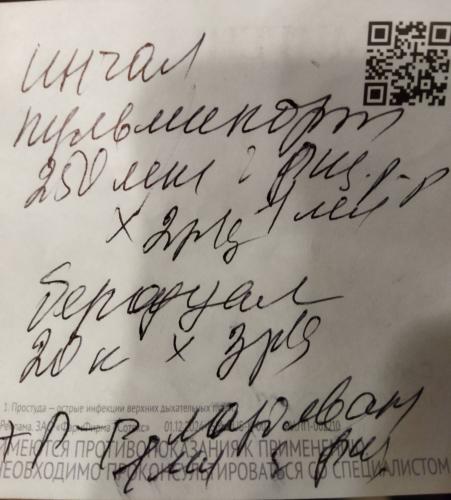 ингал
пульмикорт
250 мкг + физ. р-р
x 2р/д 1 мл
беродуал
20 к x 3р/д
1. Простуда — острые инфекции верхних дыхательных
Реклама. ЗАО «ФармФирма 01.12.2024
ИМЕЮТСЯ ПРОТИВОПОКАЗАНИЯ К ПРИМЕНЕНИЮ
НЕОБХОДИМО ПРОКОНСУЛЬТИРОВАТЬСЯ СО СПЕЦИАЛИСТОМ